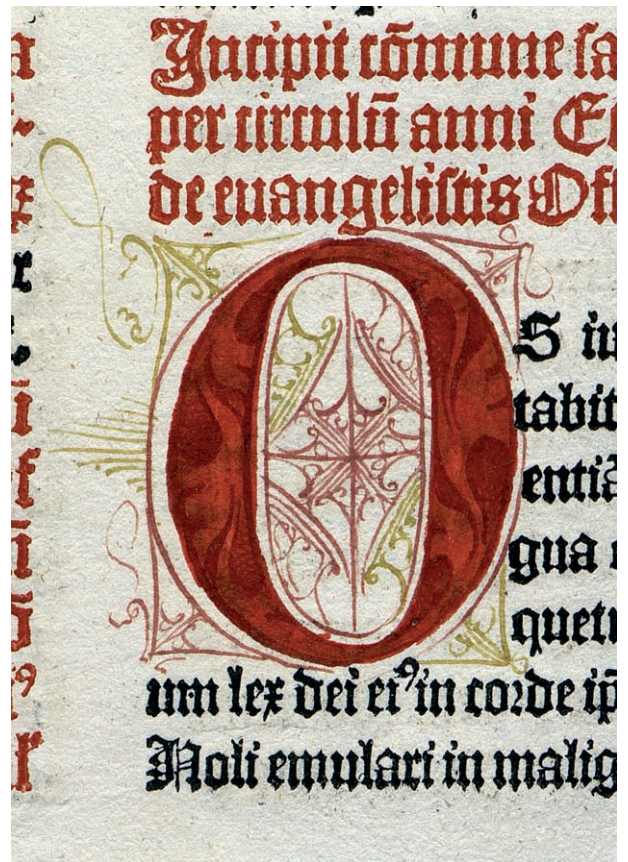 Incipit cōmune sa
per circulū anni Et
de euangelistis Off
OS iu
tabit
entiā
gua
quetu
um lex dei eiꝰ in corde ip̄
Noli emulari in malig